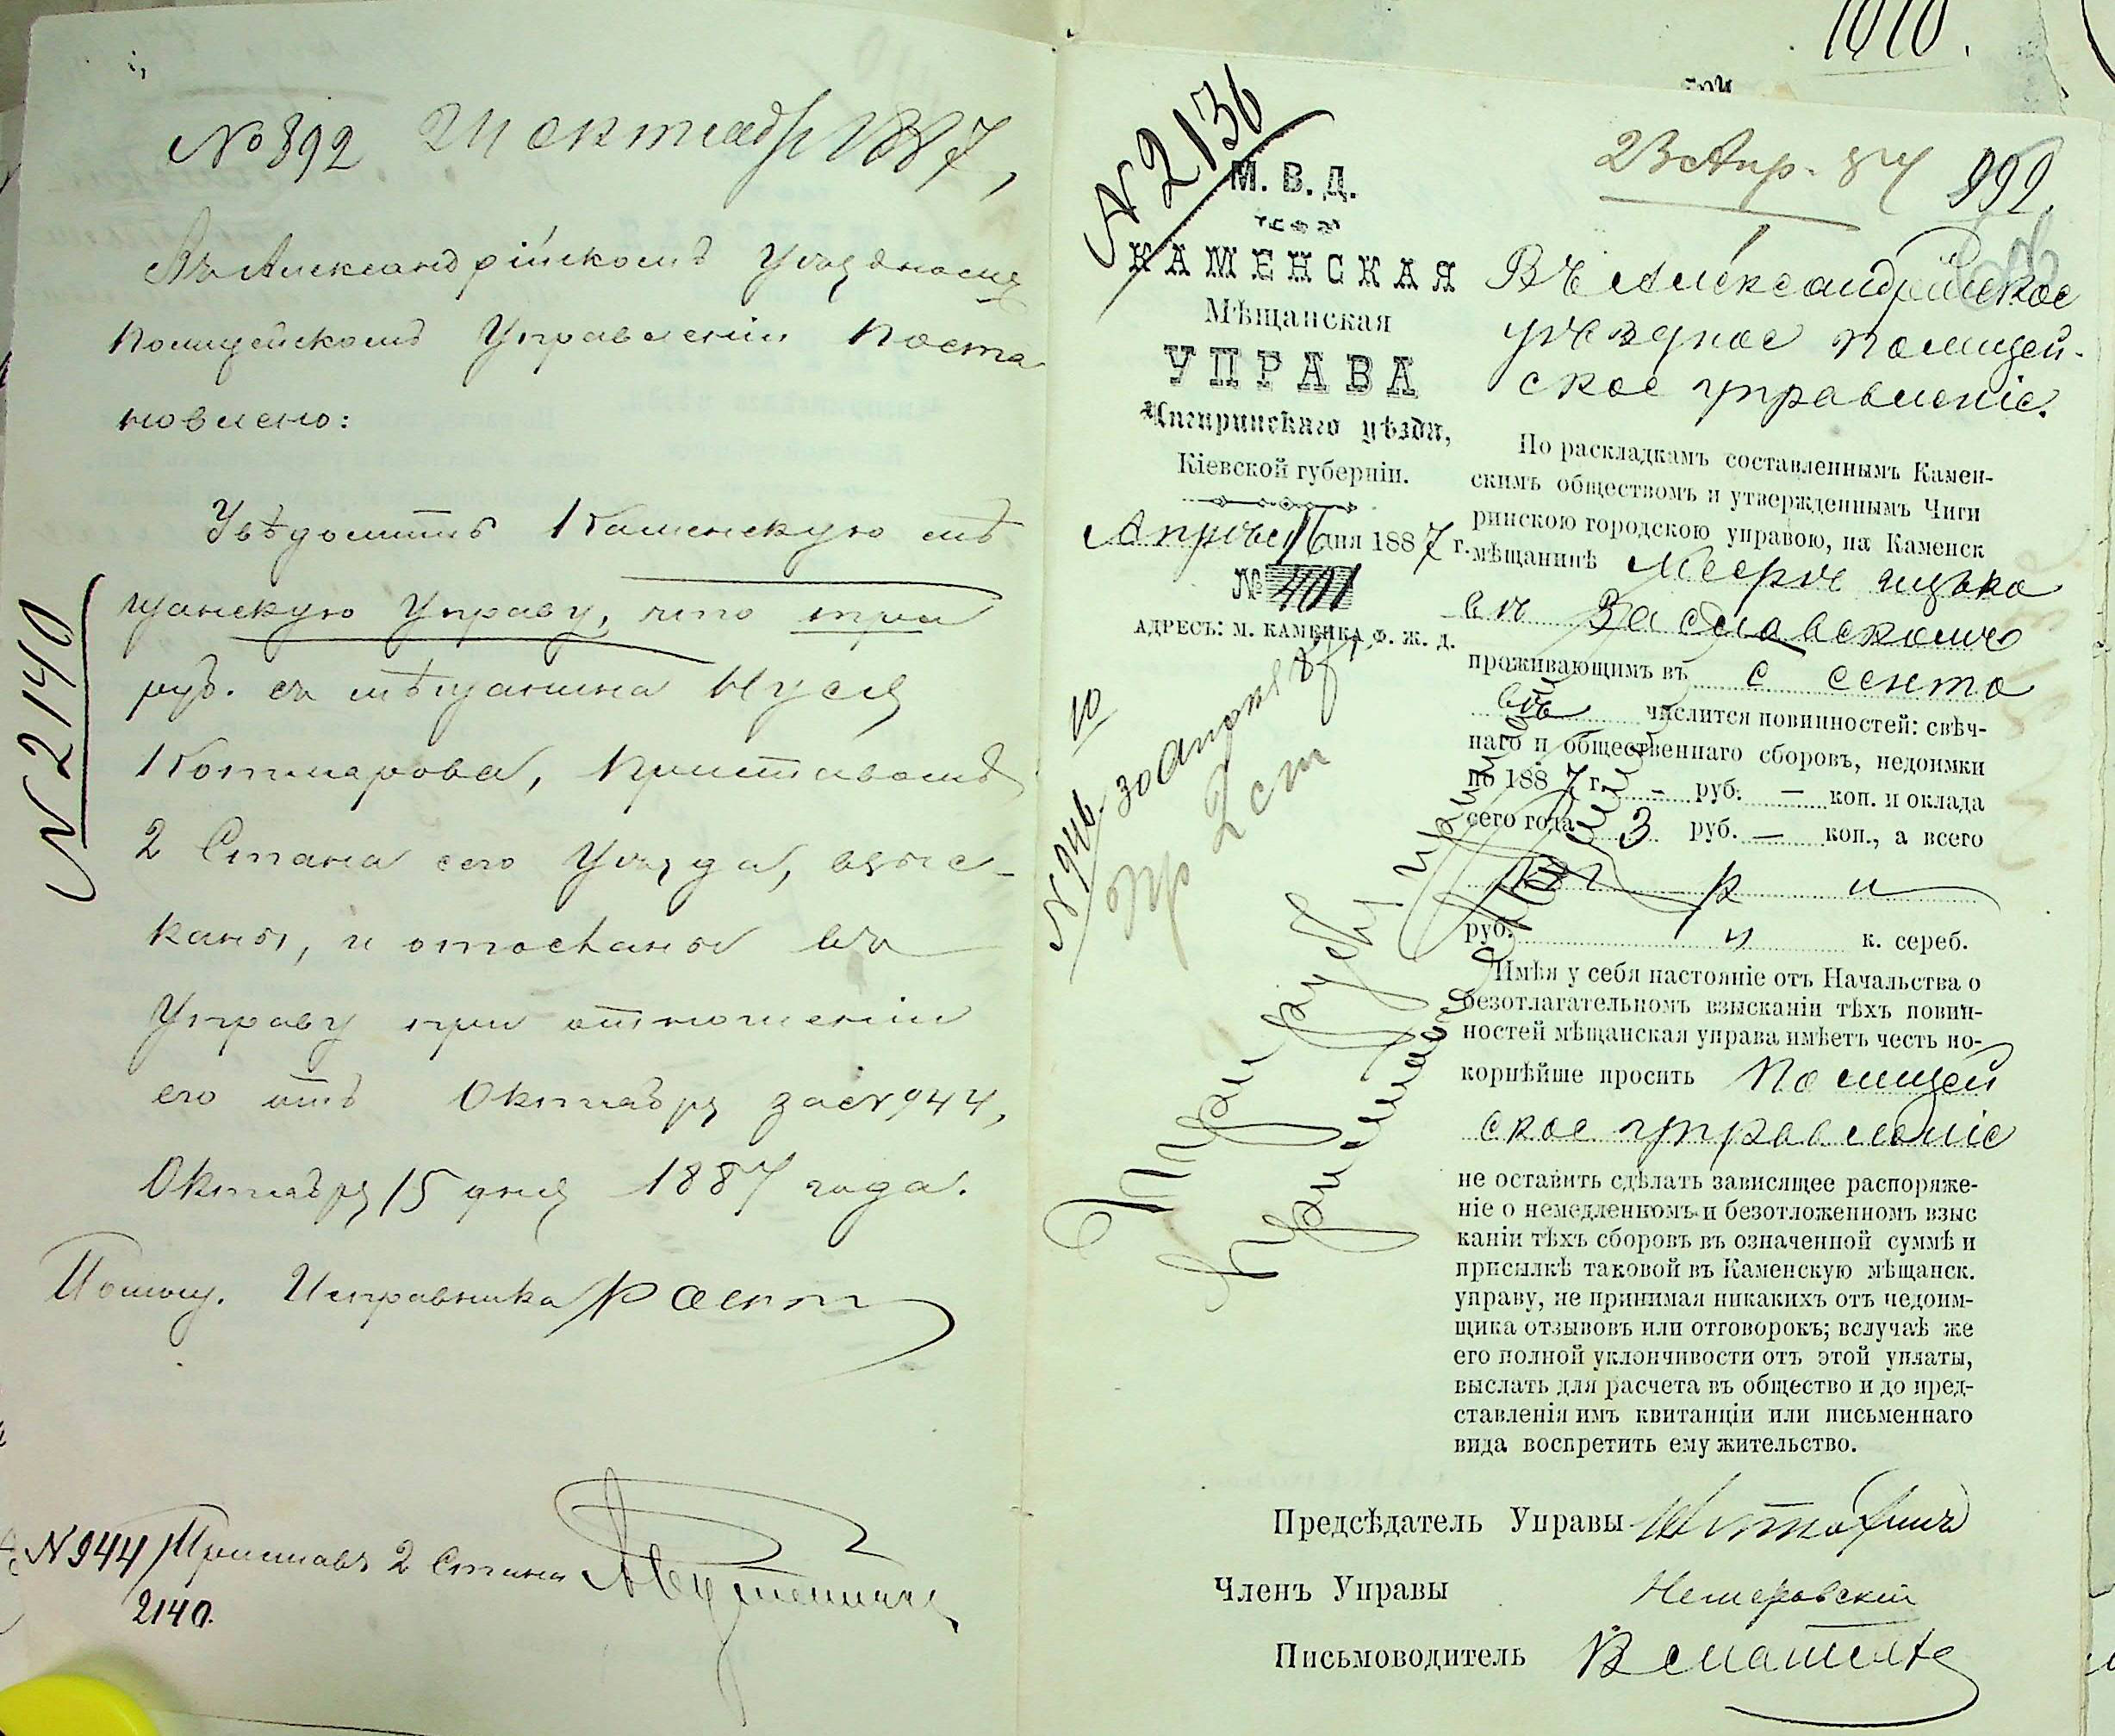 № 892 21 октября 1887,
Въ Александрійскомъ Уѣздномъ
Полицейскомъ Управленіи поста
новлено:
Увѣдомить Каменскую мѣ
щанскую Управу, что три
руб. съ мѣщанина Нуся
Котлярова, Приставомъ
2 Стана сего Уѣзда, взыс-
каны, и отосланы въ
Управу при отношеніи
его отъ Октября за № 944,
Октября 15 дня 1887 года.
Помощ. Исправника
№ 944 Приставъ 2 Стана
2140.
№ 2140
1010.
№ 2136
М. В. Д.
КАМЕНСКАЯ
Мѣщанская
УПРАВА
Чигиринскаго уѣзда,
Кіевской губерніи.
Апрѣля 16 дня 1887 г.
№ 401
АДРЕСЪ: М. КАМЕНКА Ф. Ж. Д.
23 Апр. 87 992.
Въ Александрійское
уѣздное полицей-
ское управленіе.
По раскладкамъ составленнымъ Камен-
скимъ обществомъ и утвержденнымъ Чиги
ринскою городскою управою, на Каменск
мѣщанинѣ Меерѣ Ицько
вѣ Заславскомъ
проживающимъ въ с Сенто
вѣ числится повинностей: свѣч-
наго и общественнаго сборовъ, недоимки
по 1887 г. – руб. — коп. и оклада
сего года 3 руб. — коп., а всего
три
руб. и к. сереб.
Имѣя у себя настояніе отъ Начальства о
безотлагательномъ взысканіи тѣхъ повин-
ностей мѣщанская управа имѣетъ честь по-
корнѣйше просить Полицей
ское управленіе
не оставить сдѣлать зависящее распоряже-
ніе о немедленномъ и безотложенномъ взыс
каніи тѣхъ сборовъ въ означенной суммѣ и
присылкѣ таковой въ Каменскую мѣщанск.
управу, не принимая никакихъ отъ недоим-
щика отзывовъ или отговорокъ; вслучаѣ же
его полной уклончивости отъ этой уплаты,
выслать для расчета въ общество и до пред-
ставленія имъ квитанціи или письменнаго
вида воспретить ему жительство.
Предсѣдатель Управы
Членъ Управы
Письмоводитель
30 Апрѣля 87
Пр 2 ст
Три руб.